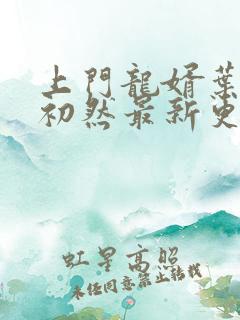 上門龍婿葉
初然最新更
虹星高照
未经同意禁止转载